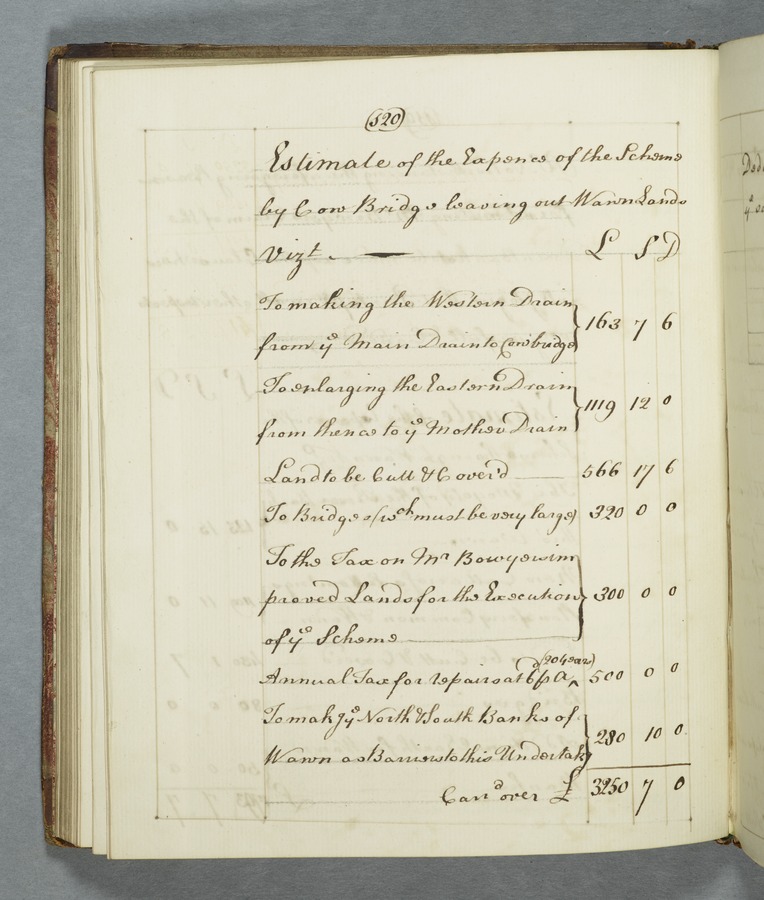 520
Estimate of the Expence of the Scheme
by Cow Bridge leaving out Wawn Lands
Vizt. — L S D
To making the Western Drain
from ye Main Drain to Cowbridge } 163 7 6
To enlarging the Eastern Drain
from thence to ye Mother Drain } 1119 12 0
Land to be Cutt & Cover'd — 566 17 6
To Bridges (wch must be very large) 320 0 0
To the Tax on Mr Bowyers im
proved Lands for the Execution } 300 0 0
of ye Scheme
Annual Tax for repairs at 6d p A ^ (20 year) 500 0 0
To makg ye North & South Banks of
Wawn as Barriers to this Undertak } 280 10 0
Carrd over £ 3250 7 0